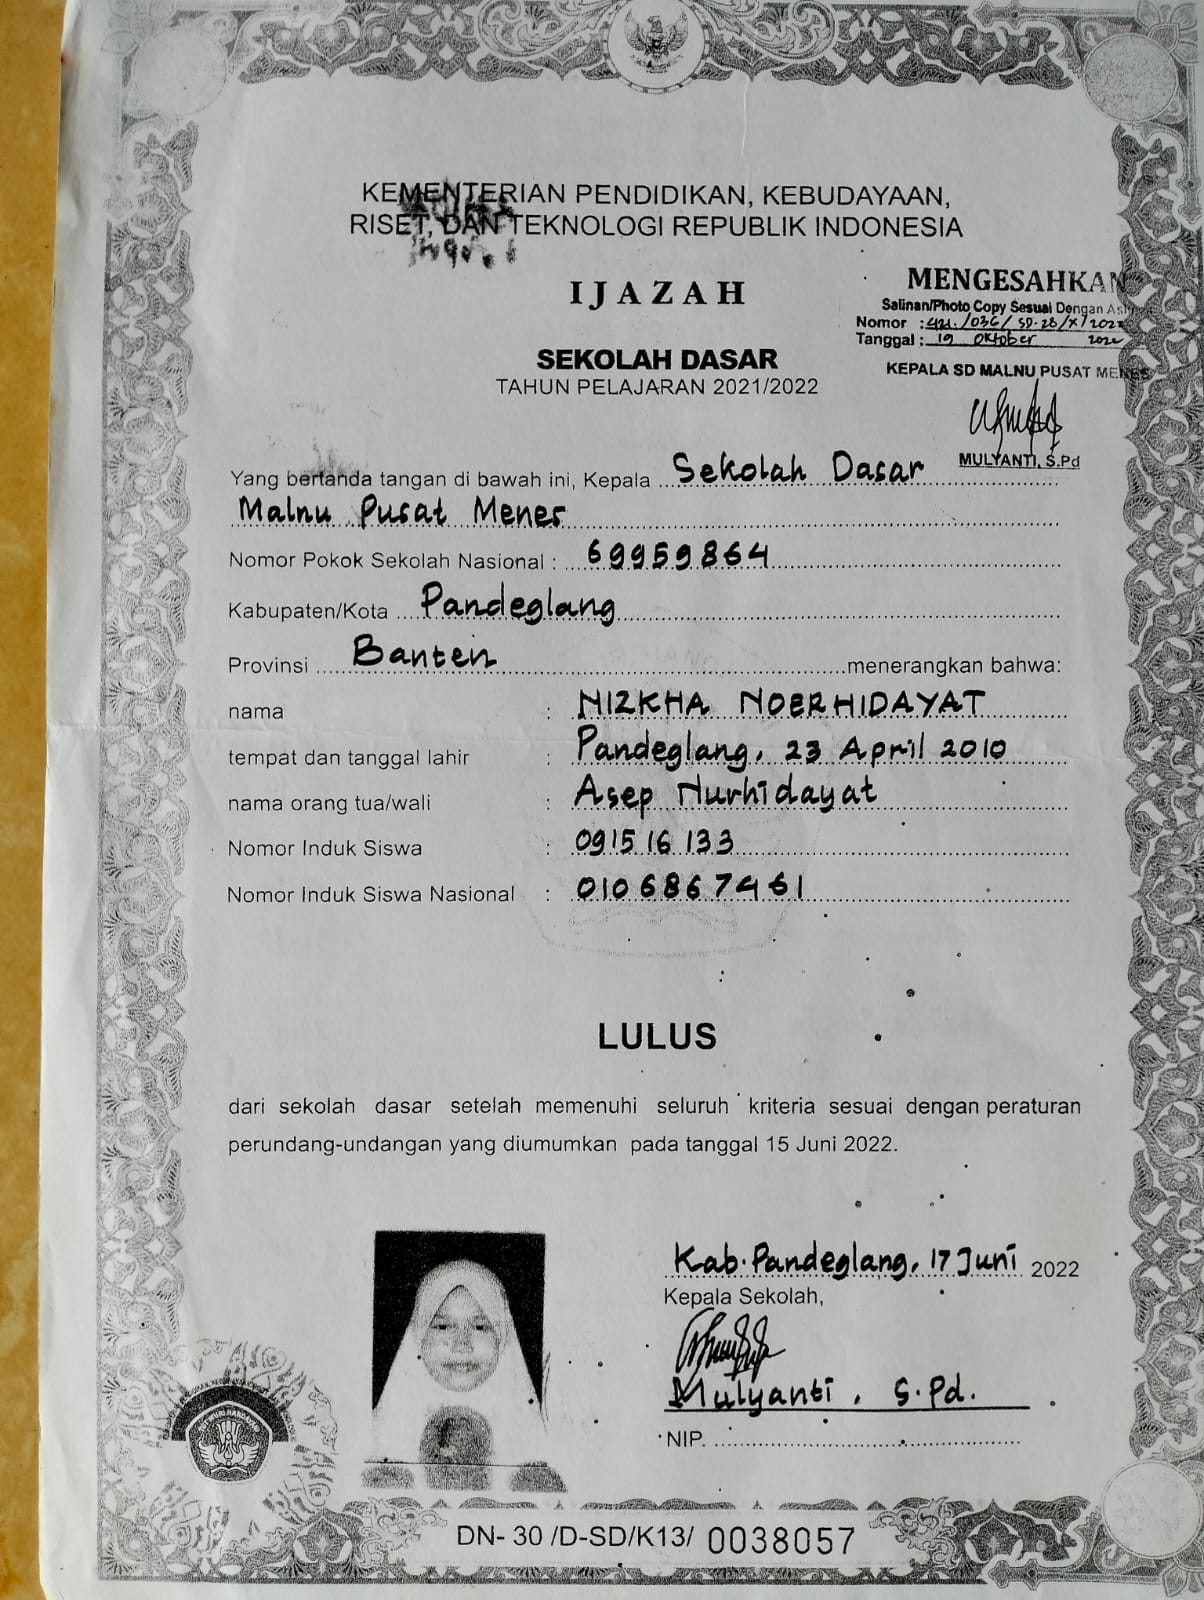 KEMENTERIAN PENDIDIKAN, KEBUDAYAAN,
RISET, DAN TEKNOLOGI REPUBLIK INDONESIA
IJAZAH
MENGESAHKAN
Salinan/Photo Copy Sesuai Dengan
Nomor : 421./036/SD-28/X/2022
Tanggal : 19 Oktober 2022
KEPALA SD MALNU PUSAT MENES
MULYANTI, S.Pd
SEKOLAH DASAR
TAHUN PELAJARAN 2021/2022
Yang bertanda tangan di bawah ini, Kepala Sekolah Dasar
Malnu Pusat Menes
Nomor Pokok Sekolah Nasional : 69959864
Kabupaten/Kota Pandeglang
Provinsi Banten menerangkan bahwa:
nama : NIZKHA NOERHIDAYAT
tempat dan tanggal lahir : Pandeglang, 23 April 2010
nama orang tua/wali : Asep Nurhidayat
Nomor Induk Siswa : 091516133
Nomor Induk Siswa Nasional : 0106867461
LULUS
dari sekolah dasar setelah memenuhi seluruh kriteria sesuai dengan peraturan
perundang-undangan yang diumumkan pada tanggal 15 Juni 2022.
Kab. Pandeglang, 17 Juni 2022
Kepala Sekolah,
Mulyanti, S.Pd.
NIP.
DN- 30 /D-SD/K13/ 0038057